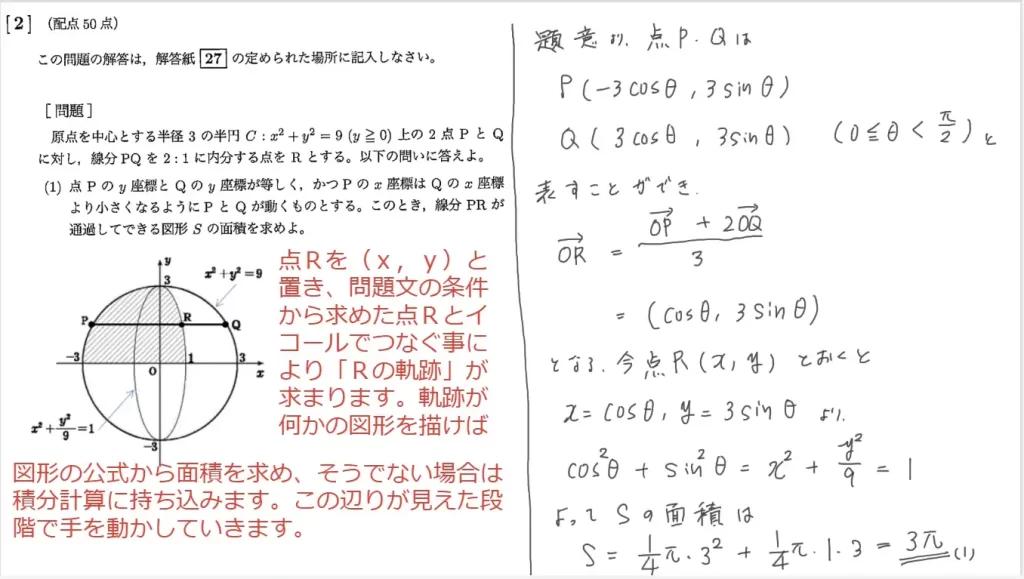 [2] (配点 50 点)
この問題の解答は，解答紙 27 の定められた場所に記入しなさい。
[問題]
原点を中心とする半径 3 の半円 C : x² + y² = 9 (y ≧ 0) 上の 2 点 P と Q
に対し，線分 PQ を 2 : 1 に内分する点を R とする。以下の問いに答えよ。
(1) 点 P の y 座標と Q の y 座標が等しく，かつ P の x 座標は Q の x 座標
より小さくなるように P と Q が動くものとする。このとき，線分 PR が
通過してできる図形 S の面積を求めよ。
y
x² + y² = 9
3
P
R
Q
-3
O
1
3
x
x² + y²/9 = 1
-3
点Ｒを（ｘ，ｙ）と
置き、問題文の条件
から求めた点Ｒとイ
コールでつなぐ事に
より「Ｒの軌跡」が
求まります。軌跡が
何かの図形を描けば
図形の公式から面積を求め、そうでない場合は
積分計算に持ち込みます。この辺りが見えた段
階で手を動かしていきます。
題意より、点P、Qは
P(-3cosθ, 3sinθ)
Q(3cosθ, 3sinθ) (0≦θ<π/2)と
表すことができ、
→OR = (→OP + 2→OQ)/3
= (cosθ, 3sinθ)
となる。今点R(x, y)とおくと
x=cosθ, y=3sinθ より、
cos²θ + sin²θ = x² + y²/9 = 1
よって S の面積は
S = 1/4 π・3² + 1/4 π・1・3 = 3π (1)